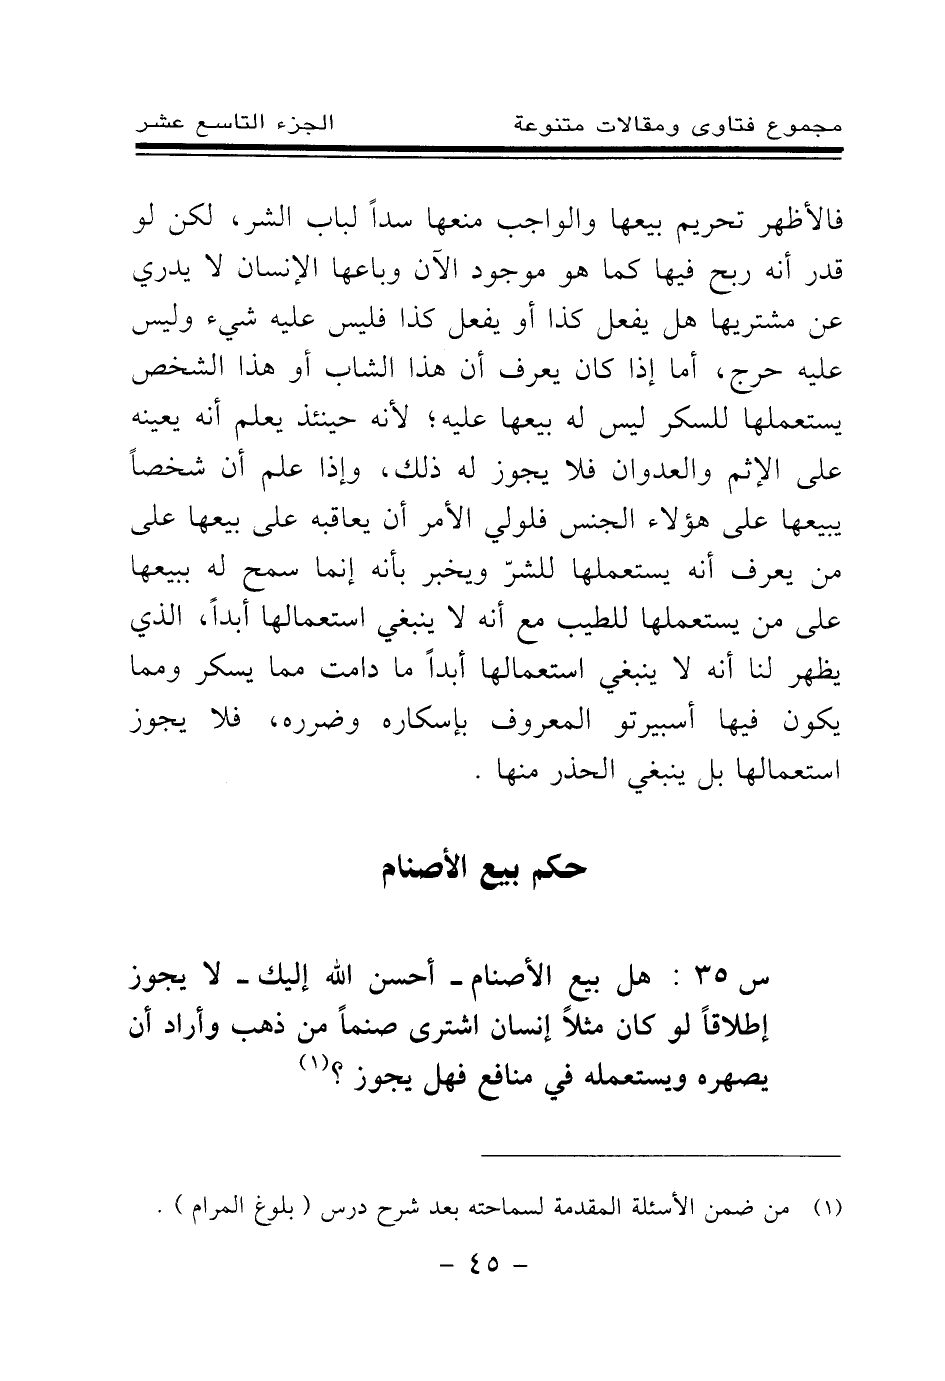 مجموع فتاوى ومقالات متنوعة الجزء التاسع عشر
فالأظهر تحريم بيعها والواجب منعها سداً لباب الشر، لكن لو
قدر أنه ربح فيها كما هو موجود الآن وباعها الإنسان لا يدري
عن مشتريها هل يفعل كذا أو يفعل كذا فليس عليه شيء وليس
عليه حرج، أما إذا كان يعرف أن هذا الشاب أو هذا الشخص
يستعملها للسكر ليس له بيعها عليه؛ لأنه حينئذ يعلم أنه يعينه
على الإثم والعدوان فلا يجوز له ذلك، وإذا علم أن شخصاً
يبيعها على هؤلاء الجنس فلولي الأمر أن يعاقبه على بيعها على
من يعرف أنه يستعملها للشرّ ويخبر بأنه إنما سمح له ببيعها
على من يستعملها للطيب مع أنه لا ينبغي استعمالها أبداً، الذي
يظهر لنا أنه لا ينبغي استعمالها أبداً ما دامت مما يسكر ومما
يكون فيها أسبيرتو المعروف بإسكاره وضرره، فلا يجوز
استعمالها بل ينبغي الحذر منها .
حكم بيع الأصنام
س ٣٥ : هل بيع الأصنام ـ أحسن الله إليك ـ لا يجوز
إطلاقاً لو كان مثلاً إنسان اشترى صنماً من ذهب وأراد أن
يصهره ويستعمله في منافع فهل يجوز ؟(١)
(١) من ضمن الأسئلة المقدمة لسماحته بعد شرح درس ( بلوغ المرام ) .
- ٤٥ -